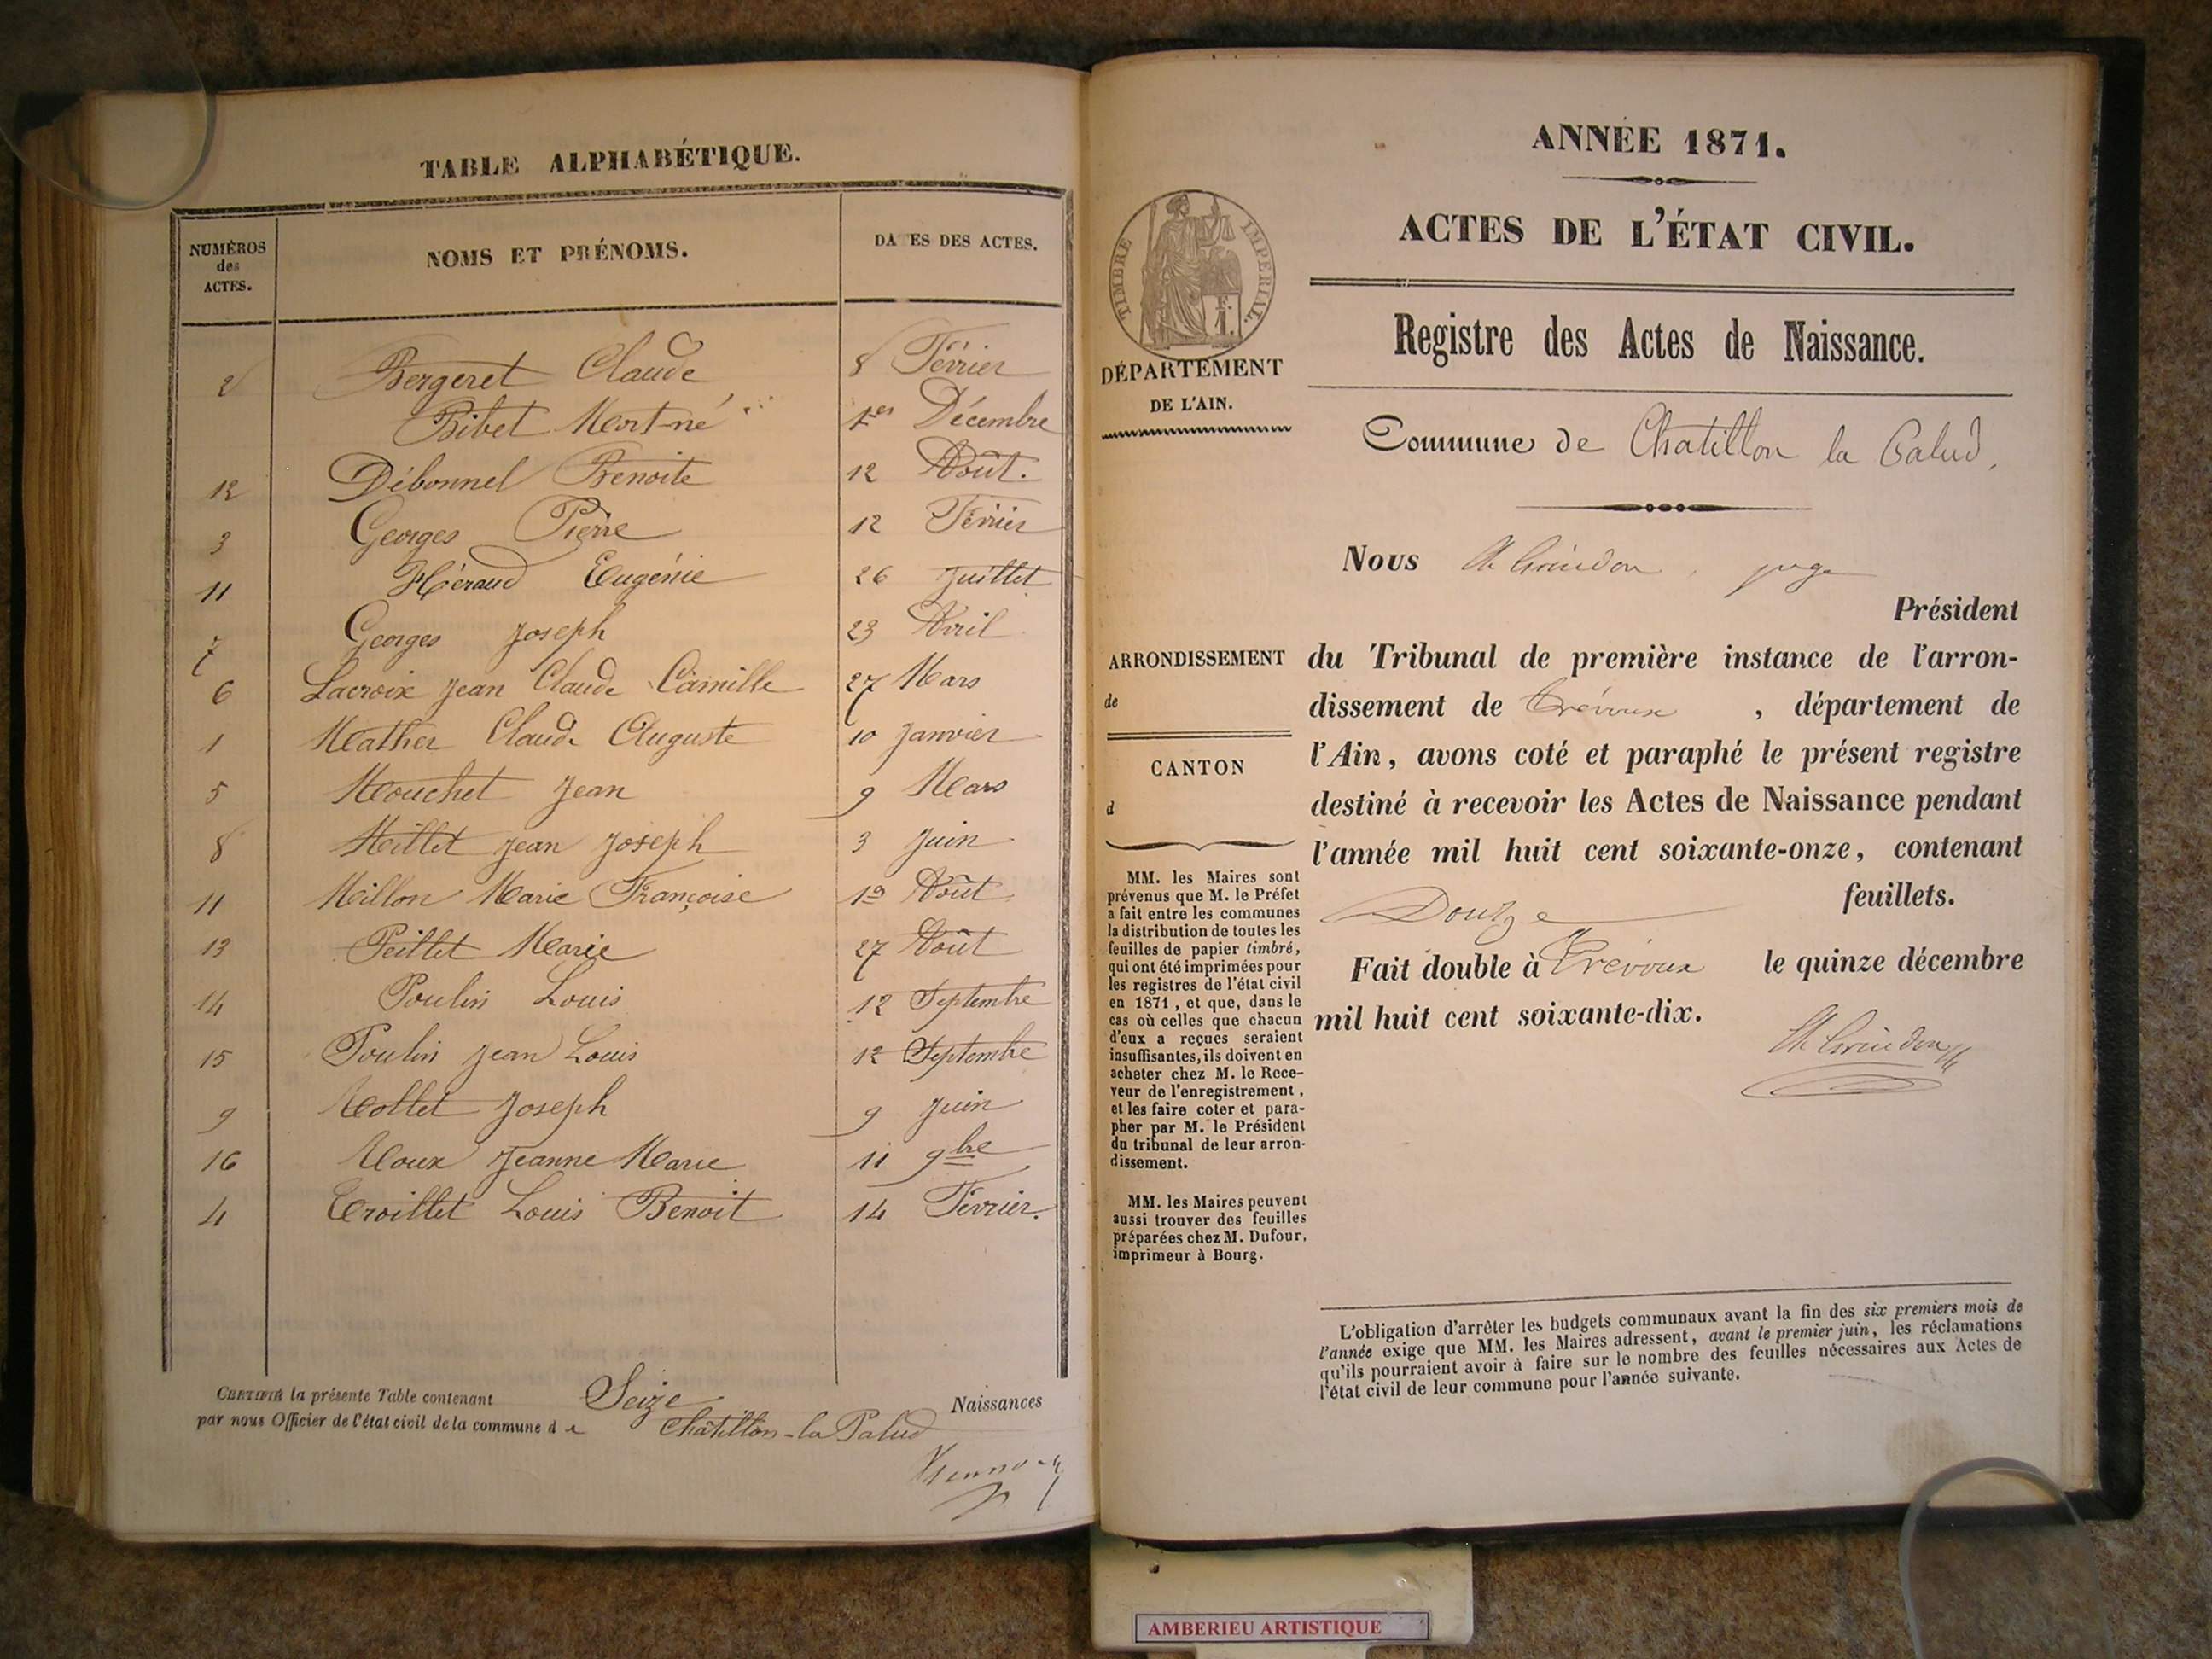 TABLE ALPHABÉTIQUE.
NUMÉROS des ACTES. NOMS ET PRÉNOMS. DATES DES ACTES.
2 Bergeret Claude 8 Février
Bibet Mort-né 1er Décembre
12 Débonnel Benoite 12 Août.
3 Georges Pierre 12 Février
11 Héraud Eugénie 26 Juillet
7 Georges Joseph 23 Avril
6 Lacroix Jean Claude Camille 27 Mars
1 Mather Claude Auguste 10 Janvier
5 Mouchet Jean 9 Mars
8 Millet Jean Joseph 3 Juin
11 Millon Marie Françoise Août
13 Peillet Marie 27 Août
14 Poulin Louis 12 Septembre
15 Poulin Jean Louis 12 Septembre
9 Joseph 9 Juin
16 Roux Jeanne Marie 11 9bre
4 Troillet Louis Benoit 14 Février.
CERTIFIÉ la présente Table contenant Seize Naissances
par nous Officier de l'état civil de la commune de Châtillon-la Palud
ANNÉE 1871.
ACTES DE L'ÉTAT CIVIL.
TIMBRE IMPERIAL.
DÉPARTEMENT
DE L'AIN.
Registre des Actes de Naissance.
Commune de Chatillon la Palud,
Nous juge
Président
ARRONDISSEMENT
de
CANTON
d
du Tribunal de première instance de l'arron-
dissement de Trévoux , département de
l'Ain, avons coté et paraphé le présent registre
destiné à recevoir les Actes de Naissance pendant
l'année mil huit cent soixante-onze, contenant
Douze feuillets.
Fait double à Trévoux le quinze décembre
mil huit cent soixante-dix.
MM. les Maires sont
prévenus que M. le Préfet
a fait entre les communes
la distribution de toutes les
feuilles de papier timbré,
qui ont été imprimées pour
les registres de l'état civil
en 1871, et que, dans le
cas où celles que chacun
d'eux a reçues seraient
insuffisantes, ils doivent en
acheter chez M. le Rece-
veur de l'enregistrement,
et les faire coter et para-
pher par M. le Président
du tribunal de leur arron-
dissement.
MM. les Maires peuvent
aussi trouver des feuilles
préparées chez M. Dufour,
imprimeur à Bourg.
L'obligation d'arrêter les budgets communaux avant la fin des six premiers mois de
l'année exige que MM. les Maires adressent, avant le premier juin, les réclamations
qu'ils pourraient avoir à faire sur le nombre des feuilles nécessaires aux Actes de
l'état civil de leur commune pour l'année suivante.
AMBERIEU ARTISTIQUE